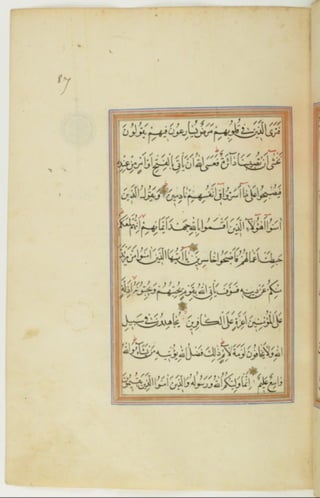 87
فَتَرَى الَّذِينَ فِي قُلُوبِهِمْ مَرَضٌ يُسَارِعُونَ فِيهِمْ يَقُولُونَ
نَخْشَى أَنْ تُصِيبَنَا دَائِرَةٌ فَعَسَى اللَّهُ أَنْ يَأْتِيَ بِالْفَتْحِ أَوْ أَمْرٍ مِنْ عِنْدِهِ
فَيُصْبِحُوا عَلَى مَا أَسَرُّوا فِي أَنْفُسِهِمْ نَادِمِينَ وَيَقُولُ الَّذِينَ
آمَنُوا أَهَؤُلَاءِ الَّذِينَ أَقْسَمُوا بِاللَّهِ جَهْدَ أَيْمَانِهِمْ إِنَّهُمْ لَمَعَكُمْ
حَبِطَتْ أَعْمَالُهُمْ فَأَصْبَحُوا خَاسِرِينَ يَا أَيُّهَا الَّذِينَ آمَنُوا مَنْ يَرْتَدَّ
مِنْكُمْ عَنْ دِينِهِ فَسَوْفَ يَأْتِي اللَّهُ بِقَوْمٍ يُحِبُّهُمْ وَيُحِبُّونَهُ أَذِلَّةٍ
عَلَى الْمُؤْمِنِينَ أَعِزَّةٍ عَلَى الْكَافِرِينَ يُجَاهِدُونَ فِي سَبِيلِ
اللَّهِ وَلَا يَخَافُونَ لَوْمَةَ لَائِمٍ ذَلِكَ فَضْلُ اللَّهِ يُؤْتِيهِ مَنْ يَشَاءُ وَاللَّهُ
وَاسِعٌ عَلِيمٌ إِنَّمَا وَلِيُّكُمُ اللَّهُ وَرَسُولُهُ وَالَّذِينَ آمَنُوا الَّذِينَ يُقِيمُونَ